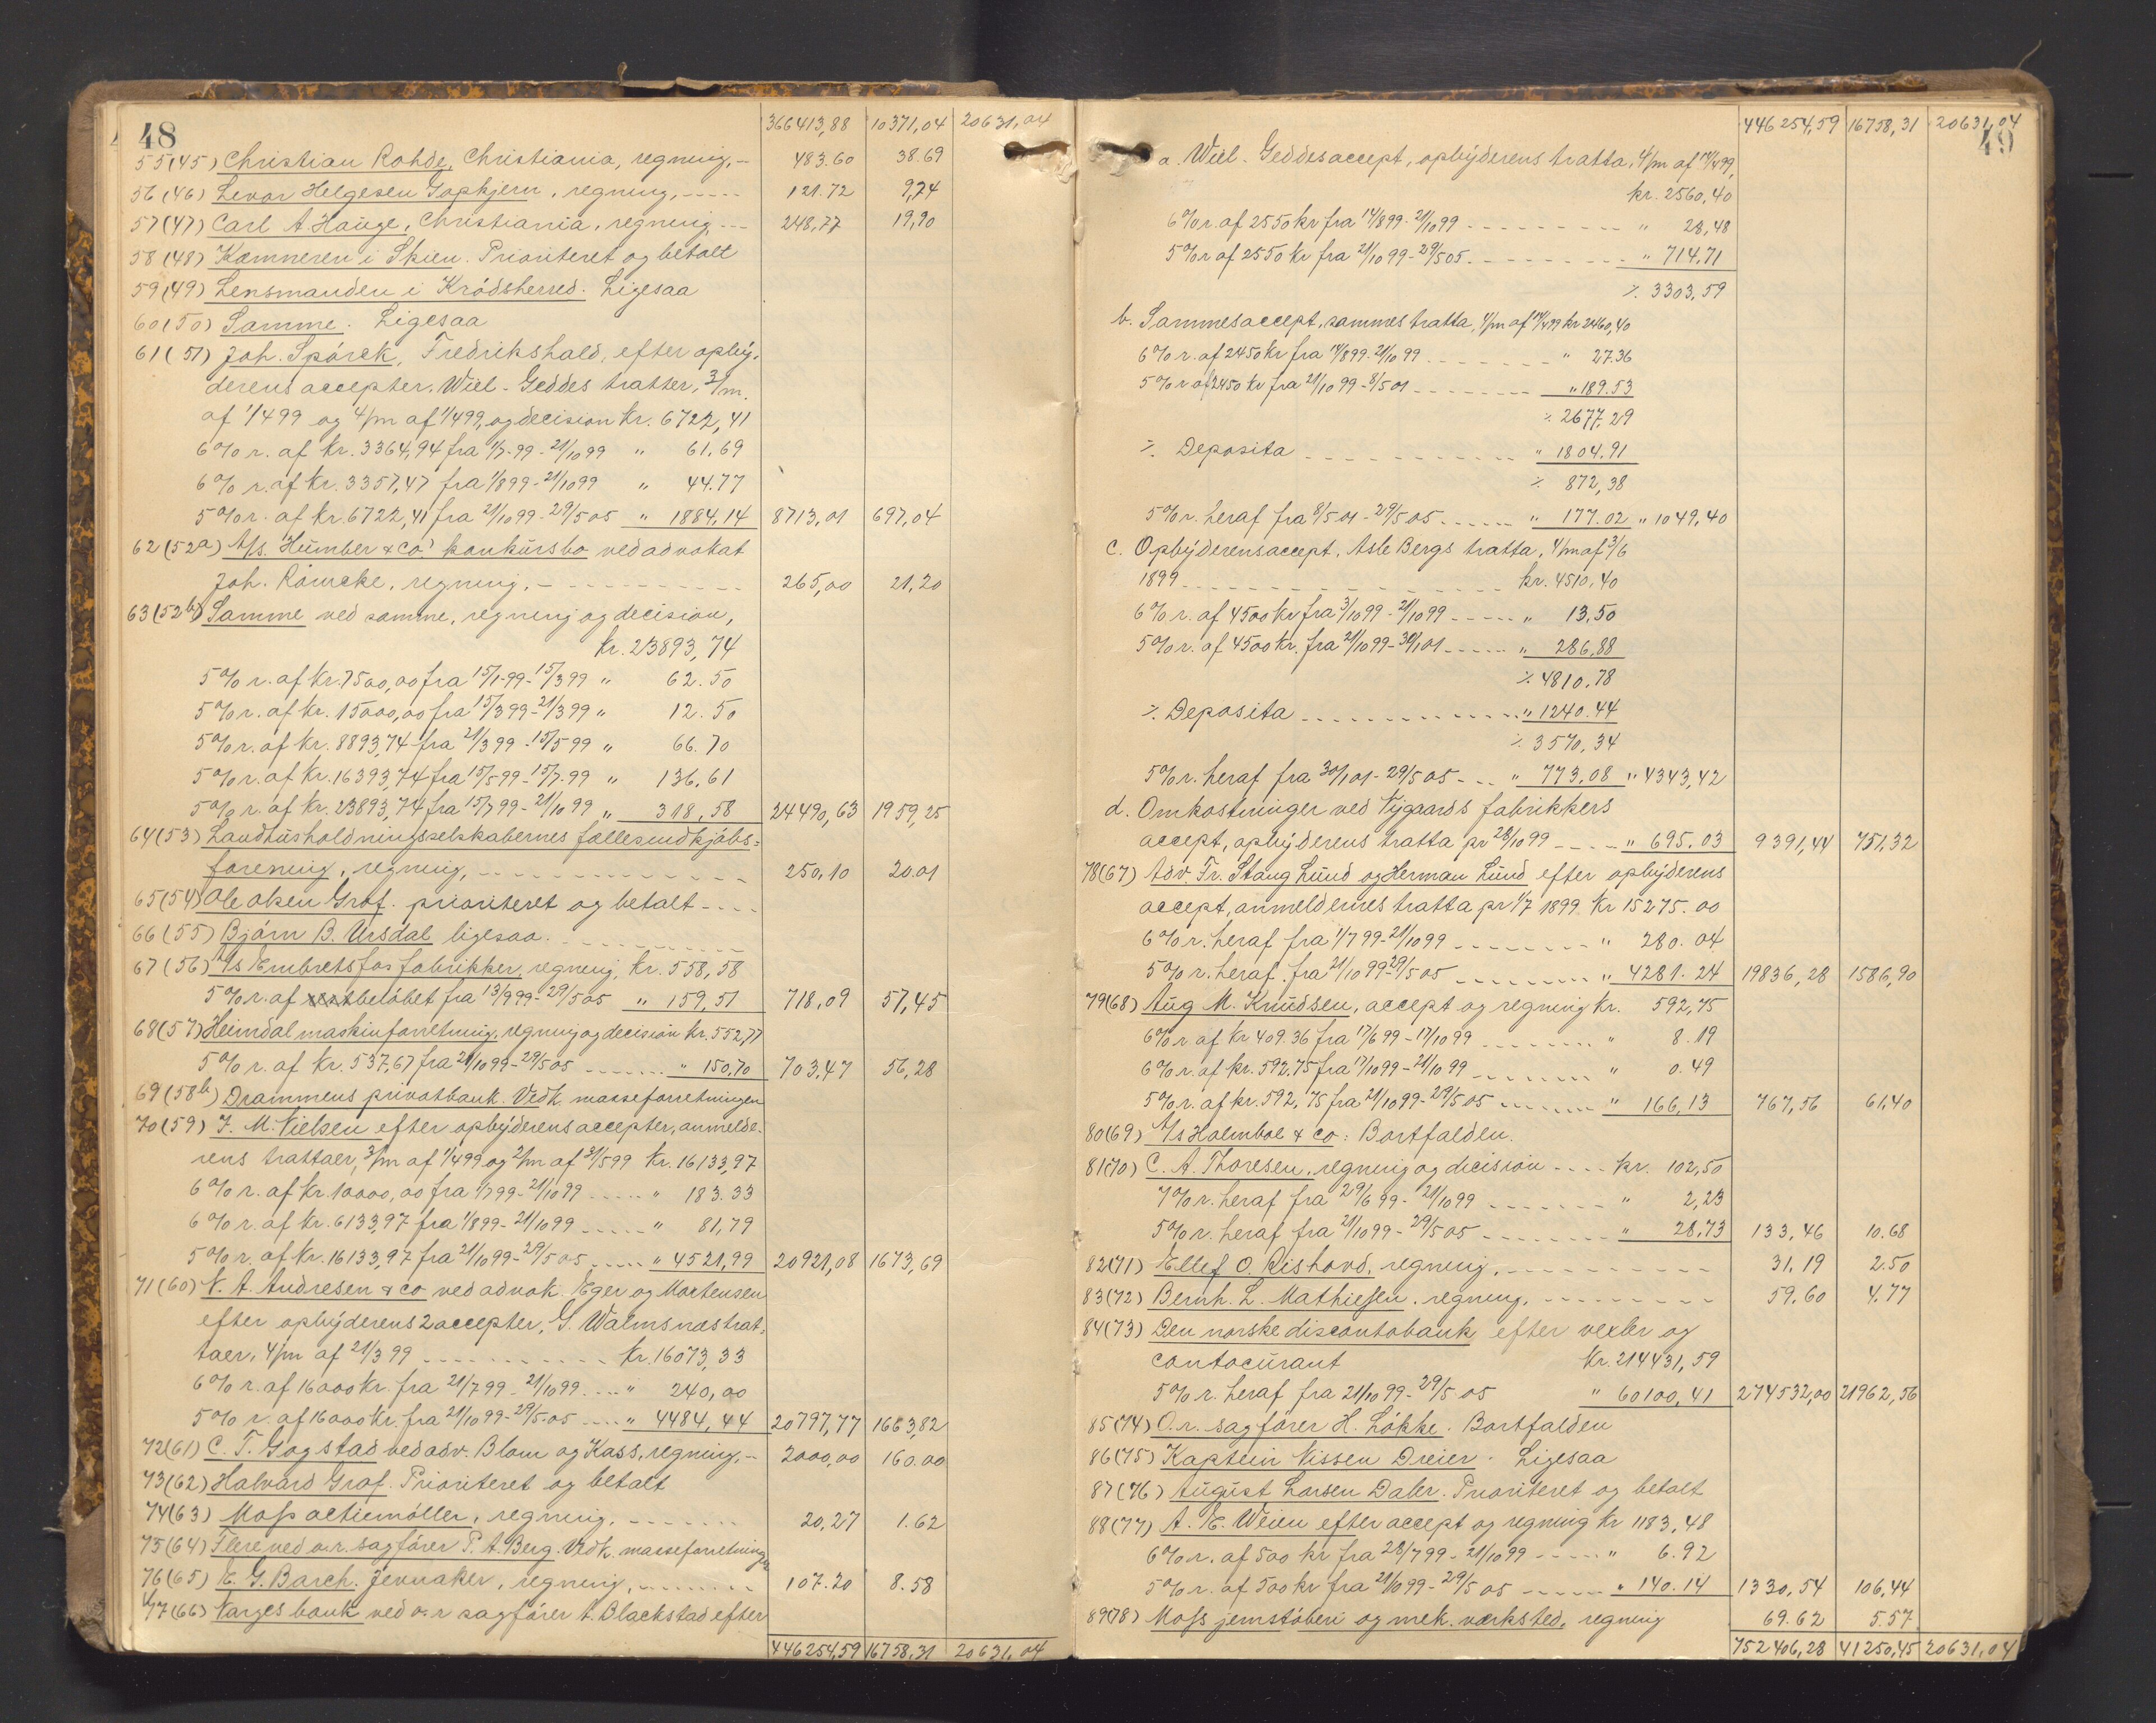 48
366413,88 10371,04 20631,04
55(45) Christian Rohde, Christiania, regning, 483.60 38.69
56(46) Levor Helgesen Gopkjern, regning, 121.72 9,74
57(47) Carl A. Hauge, Christiania, regning 248,77 19,90
58(48) Kæmneren i Skien. Prioriteret og betalt
59(49) Lensmanden i Krødsherred. Ligesaa
60(50) Samme. Ligesaa
61(51) Joh. Spørck, Fredrikshald, efter opbý-
derens accepter, Wiel-Geddes tratter, 3/m.
af 1/4 99 og 4/m af 1/4 99, og decision Kr. 6722,41
6% r. af Kr. 3364,94 fra 1/7-99-21/10 99 " 61,69
6% r. af Kr. 3357,47 fra 1/8 99-21/10 99 " 44.77
5% r. af Kr. 6722,41 fra 21/10 99-29/5 05 " 1884,14 8713,01 697,04
62(52a) A/s. Humber & Co' konkursbo ved advokat
Joh. Rømcke, regning, 265,00 21,20
63(52b) Samme ved samme, regning og decision,
Kr. 23893,74
5% r. af Kr. 7500,00 fra 15/1-99-15/3 99 " 62.50
5% r. af Kr. 15000,00 fra 15/3 99-21/3 99 " 12.50
5% r. af Kr. 8893,74 fra 21/3 99-15/5 99 " 66.70
5% r. af Kr. 16393,74 fra 15/5 99-15/7-99 " 136,61
5% r. af Kr. 23893,74 fra 15/7 99-21/10 99 " 318,58 24490,63 1959,25
64(53) Landhusholdningsselskabernes fællesindkjøbs=
forening, regning, 250,10 20.01
65(54) Ole Olsen Graf. prioriteret og betalt
66(55) Bjørn B. Ursdal ligesaa.
67(56) A/s Embretsfos fabrikker, regning, Kr. 558,58
5% r. af beløbet fra 13/9 99-29/5 05 " 159,51 718,09 57,45
68(57) Heimdal maskinforretning, regning og decision Kr. 552,77
5% r. af Kr. 537,67 fra 21/10 99-29/5 05 " 150,70 703,47 56,28
69(58b) Drammens privatbank. Vedk. masseforretningen
70(59) J. M. Nielsen efter opbýderens accepter, anmelde-
rens trattaer, 3/m af 1/4 99 og 2/m af 31/5 99 Kr. 16133,97
6% r. af Kr. 10000,00 fra 1/7 99-21/10 99 " 183.33
6% r. af Kr. 6133,97 fra 1/8 99-21/10 99 " 81,79
5% r. af Kr. 16133,97 fra 21/10 99-29/5 05 " 4521,99 20921,08 1673,69
71(60) N. A. Andresen & Co ved advok. Eger og Mortensen
efter opbýderens 2 accepter, G. Walmsnæs trat-
taer, 4/m af 21/3 99 Kr. 16073,33
6% r. af 16000 Kr. fra 21/7 99-21/10 99 " 240,00
5% r. af 16000 Kr. fra 21/10 99-29/5-05 " 4484,44 20797,77 1663,82
72(61) C. T. Gogstad ved adv. Blom og Kass, regning, 2000,00 160.00
73(62) Halvard Graf. Prioriteret og betalt
74(63) Moss actiemøller, regning, 20,27 1.62
75(64) Flere ved o.r. sagfører P. A. Berg. Vedk. masseforretningen
76(65) E. G. Barch. Jevnaker, regning, 107.20 8.58
77(66) Norges bank ved o.r sagfører A. Blackstad efter
446254,59 16758,31 20631,04
49
446254,59 16758,31 20631,04
a. Wiel-Geddes accept, opbýderens tratta, 4/m af 14/4 99,
kr. 2560,40
6% r. af 2550 kr fra 14/8 99-21/10 99 " 28,48
5% r af 2550 kr fra 21/10 99-29/5 05. " 714,71
% 3303,59
b. Sammes accept, sammes tratta, 4/m af 14/4 99 kr 2460,40
6% r. af 2450 kr fra 14/8 99-21/10 99 " 27.36
5% r af 2450 kr fra 21/10 99-8/5 01 " 189.53
% 2677,29
% Deposita " 1804.91
% 872,38
5% r. heraf fra 8/5 01-29/5 05 " 177.02 " 1049,40
c. Opbýderens accept, Asle Bergs tratta, 4/m af 3/6
1899 kr. 4510,40
6% r. af 4500 kr fra 3/10 99-21/10 99 " 13,50
5% r. af 4500 kr. fra 21/10 99-30/1 01 " 286,88
% 4810.78
% Deposita " 1240.44
% 3570,34
5% r. heraf fra 30/1 01-29/5 05 " 773.08 " 4343,42
d. Omkostninger ved Nygaards fabrikkers
accept, opbýderens tratta pr 28/10 99 " 695.03 9391,44 751,32
78(67) Adv. Fr. Stang Lund og Herman Lund efter opbýderens
accept, anmeldernes tratta pr 1/7 1899 Kr 15275.00
6% r. heraf fra 1/7 99-21/10 99 " 280.04
5% r. heraf fra 21/10 99-29/5 05 " 4281.24 19836,28 1586,90
79(68) Aug M. Knudsen, accept og regning kr. 592,75
6% r af kr 409.36 fra 17/6 99-17/10 99 " 8.19
6% r. af kr. 592.75 fra 17/10 99-21/10 99 " 0.49
5% r. af kr. 592,75 fra 21/10 99-29/5 05 " 166,13 767,56 61,40
80(69) A/s Holmboe & Co: Bortfalden.
81(70) C. A. Thoresen, regning og decision kr. 102,50
7% r. heraf fra 29/6 99-21/10 99 " 2,23
5% r. heraf fra 21/10 99-29/5 05 " 28,73 133,46 10.68
82(71) Ellef O. Rishovd, regning, 31,19 2.50
83(72) Bernh. L. Mathiesen, regning, 59,60 4,77
84(73) Den norske discontobank efter vexler og
contocurant Kr. 214431,59
5% r. heraf fra 21/10 99-29/5 05 " 60100,41 274532,00 21962,56
85(74) O.r. sagfører H. Løkke. Bortfalden
86(75) Kaptein Nissen Dreier. Ligesaa
87(76) August Larsen Daler. Prioriteret og betalt
88(77) A. E. Weien efter accept og regning Kr 1183,48
6% r. af 500 kr fra 28/7 99-21/10 99 " 6.92
5% r. af 500 kr fra 21/10 99-29/5 05 " 140.14 1330,54 106,44
89(78) Moss jernstøberi og mek. værksted, regning 69.62 5.57
752406,28 41250,45 20631,04